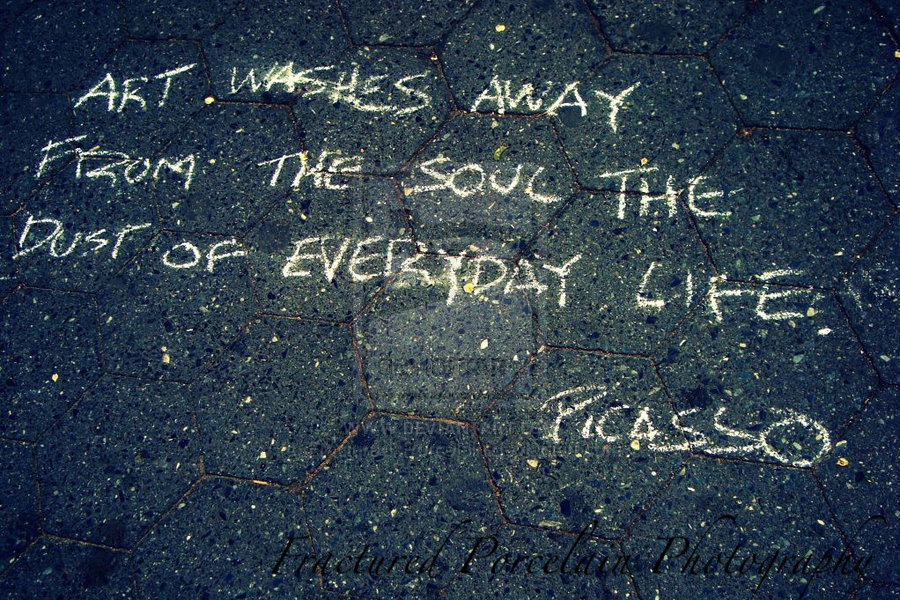 ART WASHES AWAY
FROM THE SOUL THE
DUST OF EVERYDAY LIFE.
PICASSO
Fractured Porcelain Photography